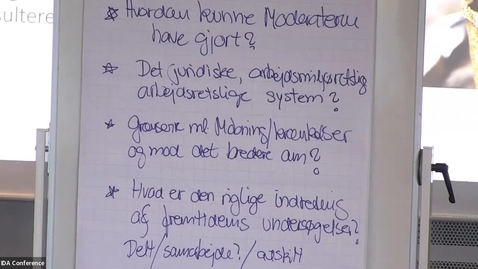 sultere
* Hvordan kunne Moderaterne
have gjort?
* Det juridiske, arbejdsmiljøretslig
arbejdsretslige system?
* Grænserne ml. Mobning/krænkelser
og mod det bredere am?
* Hvad er den rigtige indretning
af fremtidens undersøgelser?
Delt/samarbejde?/adskilt
IDA Conference